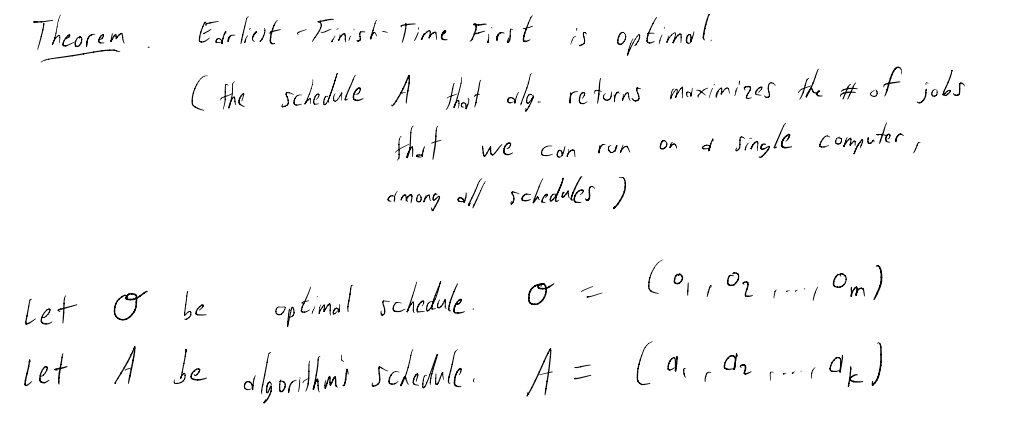 Theorem. Earliest-Finish-Time First is optimal.
(the schedule A that alg. returns maximizes the # of jobs
that we can run on a single computer,
among all schedules)
Let O be optimal schedule. O = (o₁, o₂, ..., oₘ)
Let A be algorithm's schedule. A = (a₁, a₂, ..., aₖ)